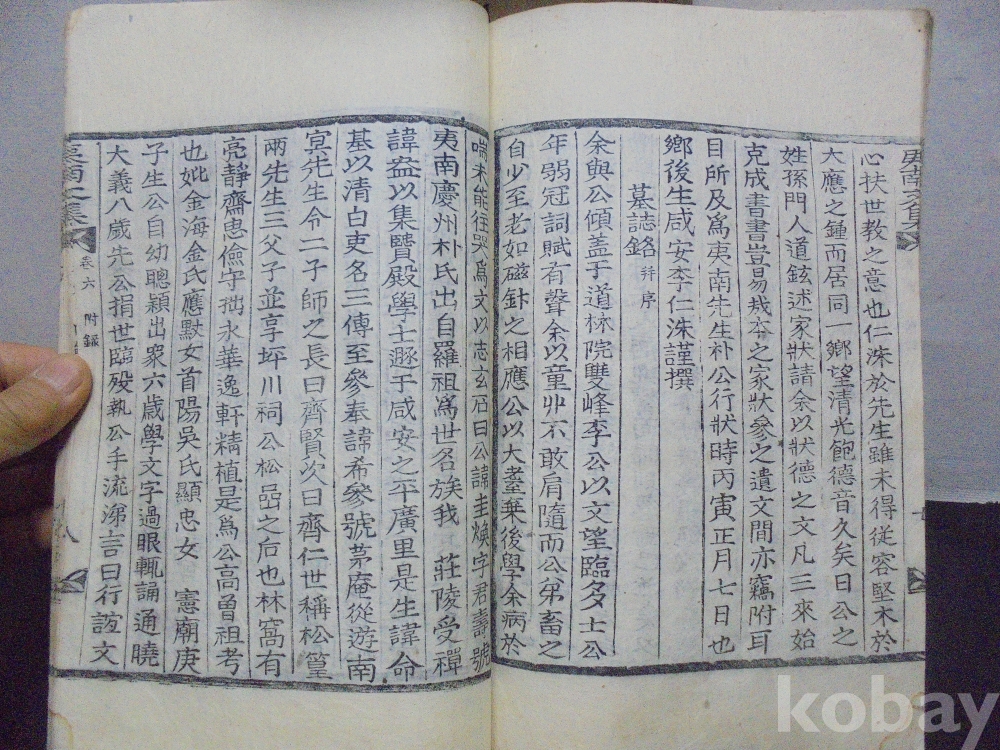 心扶世教之意也仁洙於先生雖未得從容堅木於
大應之鍾而居同一鄕望淸光飽德音久矣日公之
姓孫門人道鉉述家狀請余以狀德之文凡三來始
克成書書豈易哉夲之家狀參之遺文間亦竊附耳
目所及爲夷南先生朴公行狀時丙寅正月七日也
鄕後生咸安李仁洙謹撰
墓誌銘 幷序
余與公傾盖于道林院雙峰李公以文望臨多士公
年弱冠詞賦有聲余以童丱不敢肩隨而公弟畜之
自少至老如磁針之相應公以大耋棄後學余病於
喘未能往哭爲文以志玄石曰公諱圭煥字君壽號
夷南慶州朴氏出自羅祖爲世名族我 莊陵受禪
諱益以集賢殿學士遯于咸安之平廣里是生諱命
基以淸白吏名三傳至參奉諱希參號茅庵從遊南
冝先生令二子師之長曰齊賢次曰齊仁世稱松篁
兩先生三父子並享坪川祠公松嵒之后也林窩有
亮靜齋忠儉守拙永華逸軒精植是爲公高曾祖考
也妣金海金氏應默女首陽吳氏顯忠女 憲廟庚
子生公自幼聰穎出衆六歲學文字過眼輒誦通曉
大義八歲先公捐世臨歿執公手流涕言曰行誼文
夷南文集
卷六 附錄
八
kobay